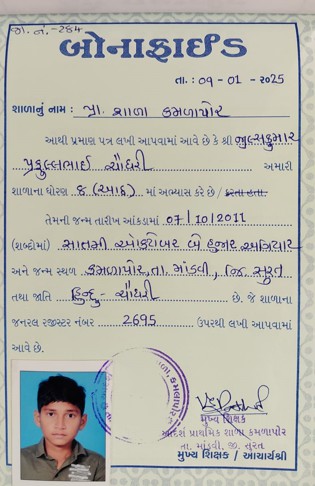 જા. નં. -284
બોનાફાઈડ
તા. : 01 - 01 - 2025
શાળાનું નામ : પ્રા. શાળા કમળાપોર
આથી પ્રમાણ પત્ર લખી આપવામાં આવે છે કે શ્રી
પ્રફુલ્લભાઈ ચૌધરી અમારી
શાળાના ધોરણ ૮ (આઠ) માં અભ્યાસ કરે છે / કરતા હતા.
તેમની જન્મ તારીખ આંકડામાં 07/10/2011
(શબ્દોમાં) સાતમી ઓક્ટોબર બે હજાર અગિયાર
અને જન્મ સ્થળ કમળાપોર, તા. માંડવી, જિ. સુરત
તથા જાતિ હિન્દુ - ચૌધરી છે. જે શાળાના
જનરલ રજીસ્ટર નંબર 2695 ઉપરથી લખી આપવામાં
આવે છે.
મુખ્ય શિક્ષક
આદર્શ પ્રાથમિક શાળા કમળાપોર
તા. માંડવી, જી. સુરત
મુખ્ય શિક્ષક / આચાર્યશ્રી